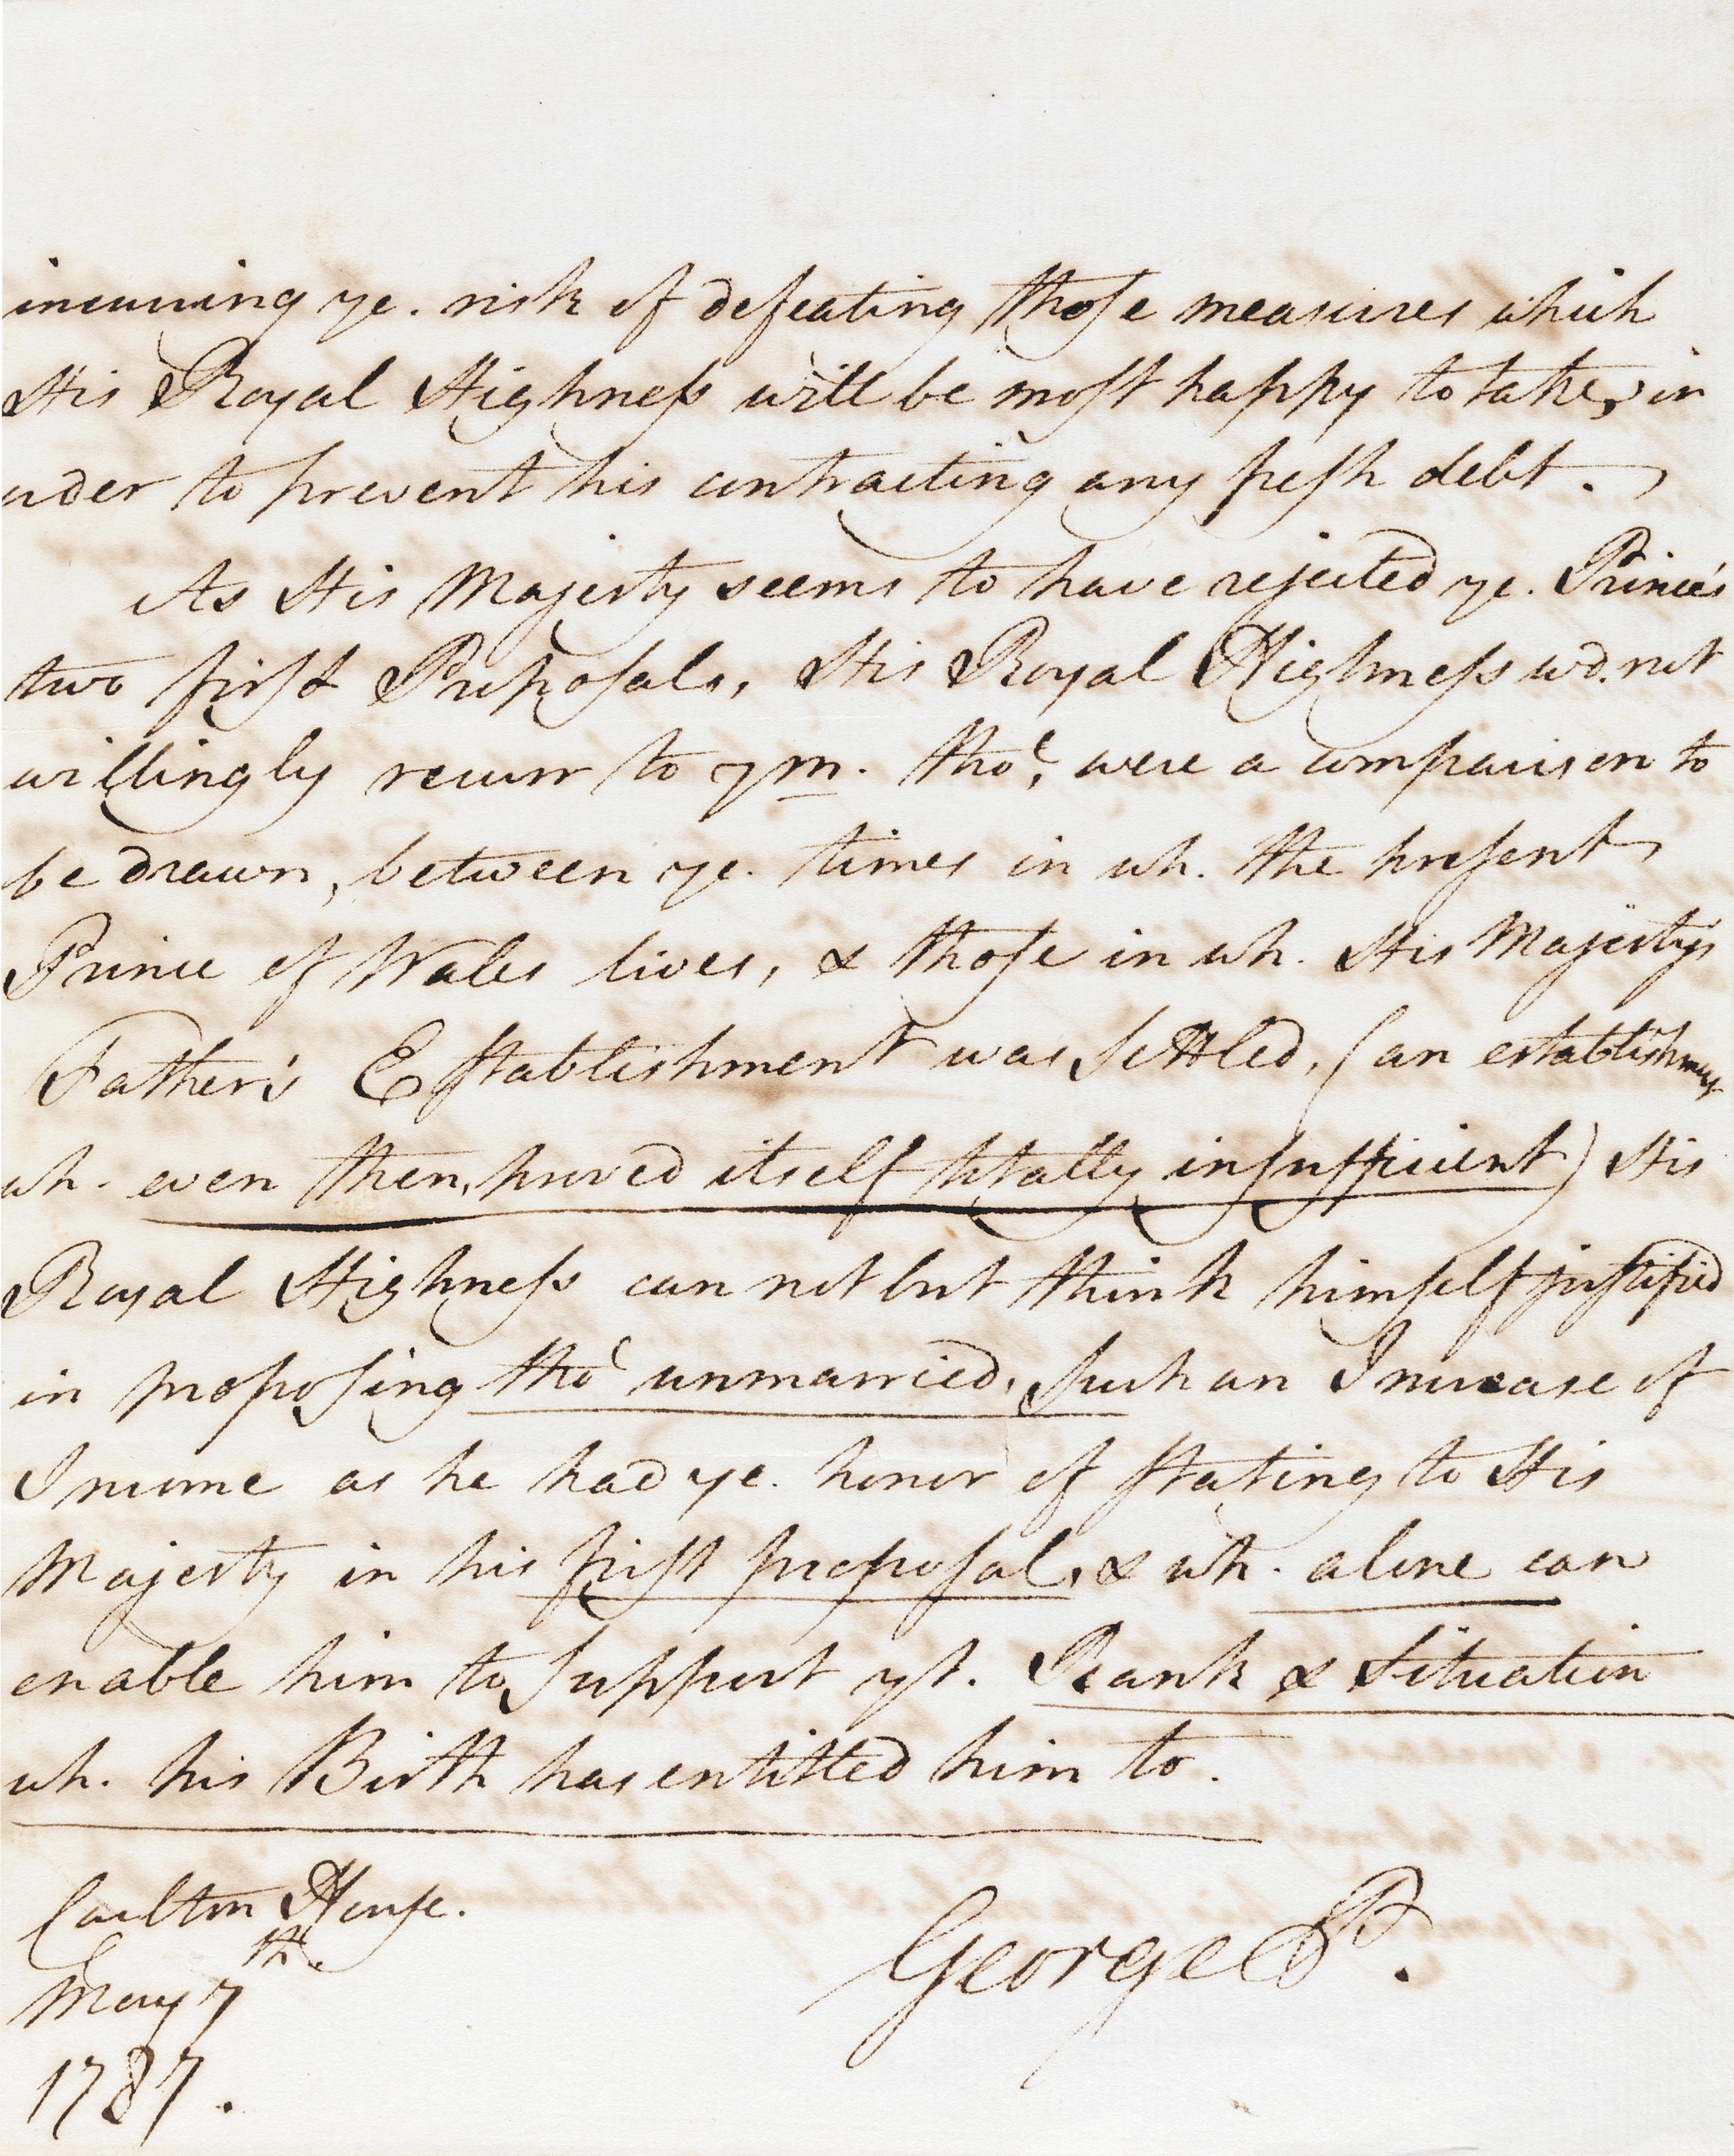 incurring ye. risk of defeating those measures which
His Royal Highness will be most happy to take, in
order to prevent his contracting any fresh debt.
As His Majesty seems to have rejected ye. Prince's
two first Proposals, His Royal Highness wd. not
willingly recurr to ym. tho', were a comparison to
be drawn, between ye. times in wh. the present
Prince of Wales lives, & those in wh. His Majesty's
Father's Establishment was settled, (an establishment
wh. even then, proved itself totally insufficient) His
Royal Highness can not but think himself justified
in proposing tho' unmarried, such an Increase of
Income as he had ye. honor of stating to His
Majesty in his first proposal, & wh. alone can
enable him to support yt. Rank & Situation
wh. his Birth has entitled him to.
Carlton House.
May 7th.
1787.
George P.